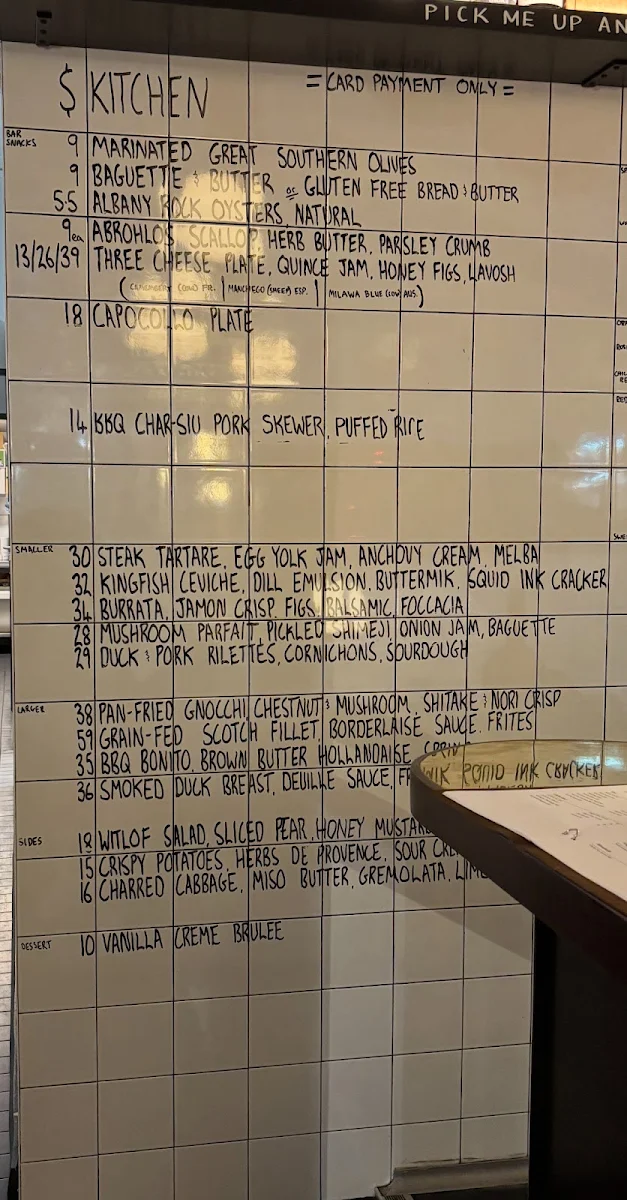 PICK ME UP AN
$ KITCHEN
= CARD PAYMENT ONLY =
BAR SNACKS
9 MARINATED GREAT SOUTHERN OLIVES
9 BAGUETTE & BUTTER or GLUTEN FREE BREAD & BUTTER
5.5 ALBANY ROCK OYSTERS, NATURAL
9ea ABROHLOS SCALLOP, HERB BUTTER, PARSLEY CRUMB
13/26/39 THREE CHEESE PLATE, QUINCE JAM, HONEY FIGS, LAVOSH
(COW) FR. | MANCHEGO (SHEEP) ESP. | MILAWA BLUE (COW) AUS.)
18 CAPOCOLLO PLATE
14 BBQ CHAR-SIU PORK SKEWER, PUFFED RICE
SMALLER
30 STEAK TARTARE, EGG YOLK JAM, ANCHOVY CREAM, MELBA
32 KINGFISH CEVICHE, DILL EMULSION, BUTTERMIK, SQUID INK CRACKER
34 BURRATA, JAMON CRISP, FIGS, BALSAMIC, FOCCACIA
28 MUSHROOM PARFAIT, PICKLED SHIMEJI, ONION JAM, BAGUETTE
29 DUCK & PORK RILETTES, CORNICHONS, SOURDOUGH
LARGER
38 PAN-FRIED GNOCCHI, CHESTNUT & MUSHROOM, SHITAKE & NORI CRISP
59 GRAIN-FED SCOTCH FILLET, BORDERLAISE SAUCE, FRITES
35 BBQ BONITO, BROWN BUTTER HOLLANDAISE,
36 SMOKED DUCK BREAST, DEUILLE SAUCE, FR
SIDES
18 WITLOF SALAD, SLICED PEAR, HONEY MUSTARD
15 CRISPY POTATOES, HERBS DE PROVENCE, SOUR CRE
16 CHARRED CABBAGE, MISO BUTTER, GREMOLATA, LIME
DESSERT
10 VANILLA CREME BRULEE